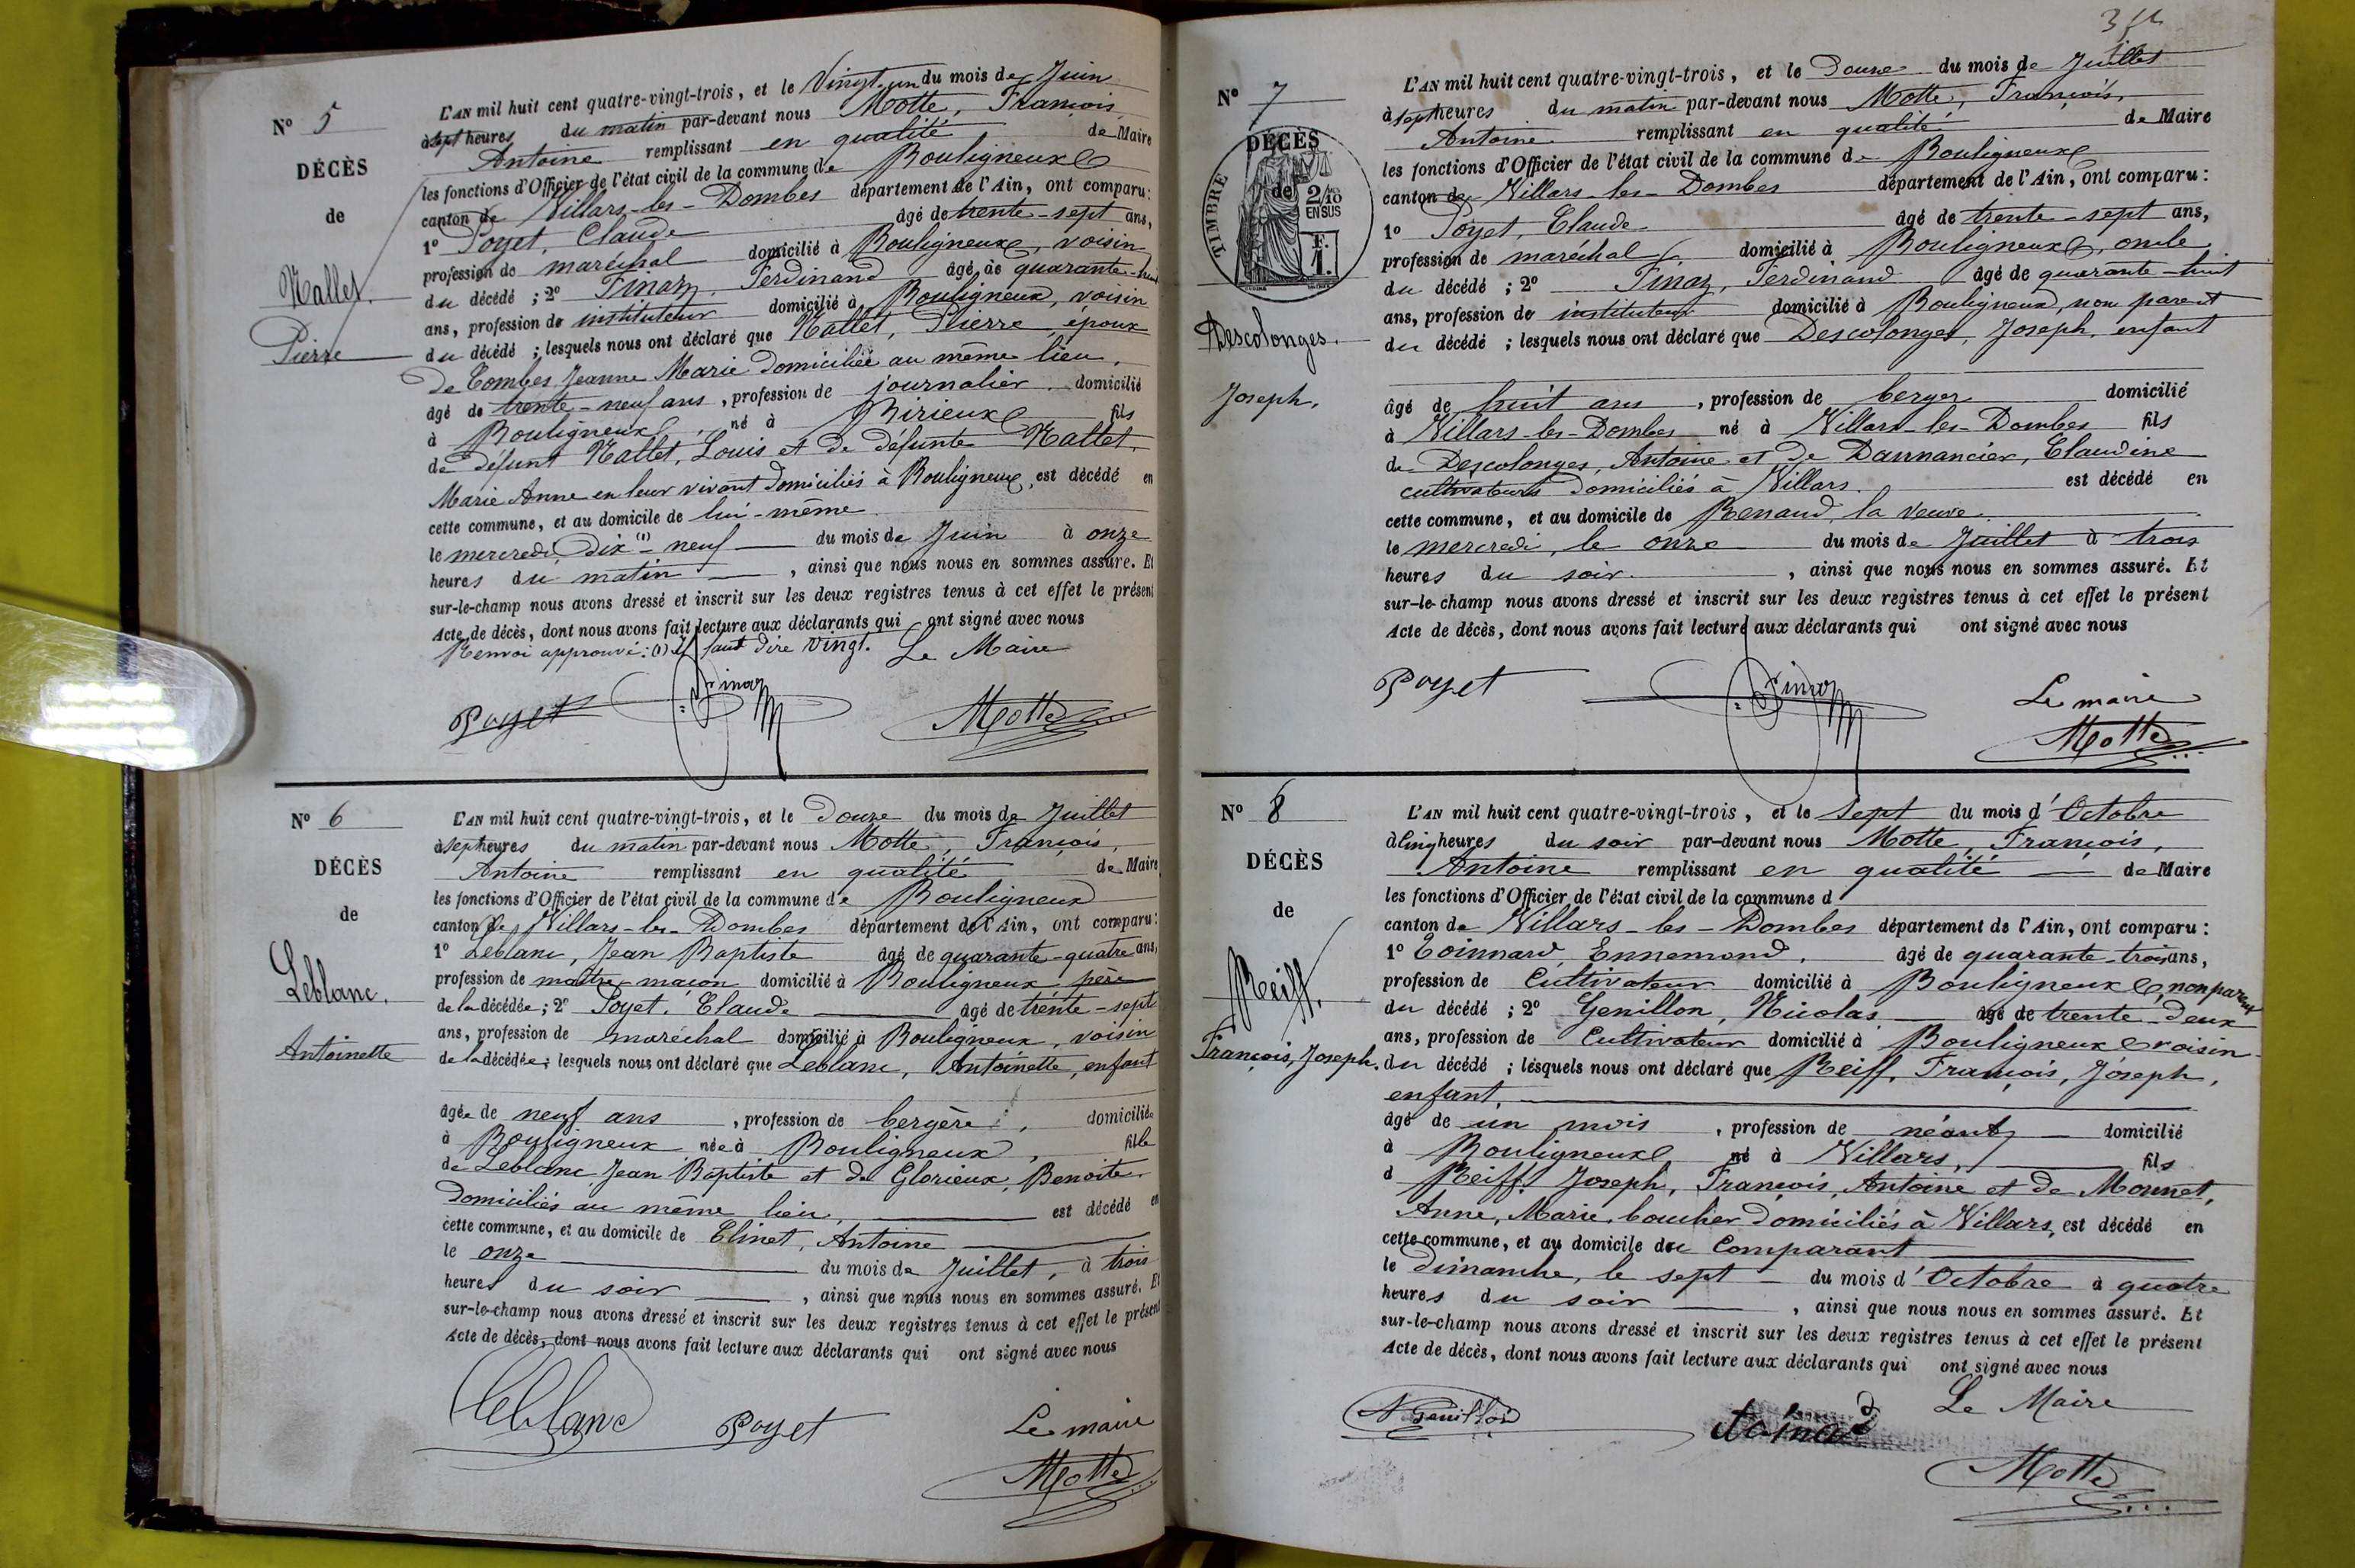 N° 5
DÉCÈS
de
Nallet.
Pierre
L'AN mil huit cent quatre-vingt-trois, et le Vingt-un du mois de Juin
à sept heures du matin par-devant nous Motte, François
Antoine remplissant en qualité de Maire
les fonctions d'Officier de l'état civil de la commune de Bouligneux
canton de Villars-les-Dombes département de l'Ain, ont comparu:
1° Poyet, Claude âgé de trente-sept ans,
profession de maréchal domicilié à Bouligneux, voisin
du décédé ; 2° Finaz, Ferdinand âgé de quarante-huit
ans, profession de instituteur domicilié à Bouligneux, voisin
du décédé ; lesquels nous ont déclaré que Nallet, Pierre époux
de Combes Jeanne Marie domiciliée au même lieu,
âgé de trente-neuf ans, profession de journalier domicilié
à Bouligneux, né à Birieux fils
de défunt Nallet, Louis et de défunte Nallet,
Marie Anne en leur vivant domiciliés à Bouligneux, est décédé en
cette commune, et au domicile de lui-même
le mercredi dix (1)-neuf du mois de Juin à onze
heures du matin, ainsi que nous nous en sommes assuré. Et
sur-le-champ nous avons dressé et inscrit sur les deux registres tenus à cet effet le présent
Acte de décès, dont nous avons fait lecture aux déclarants qui ont signé avec nous
Renvoi approuvé: (1) Il faut dire vingt. Le Maire
Poyet Finaz Motte
N° 6
DÉCÈS
de
Leblanc.
Antoinette
L'AN mil huit cent quatre-vingt-trois, et le Douze du mois de Juillet
à sept heures du matin par-devant nous Motte, François,
Antoine remplissant en qualité de Maire
les fonctions d'Officier de l'état civil de la commune de Bouligneux
canton de Villars-les-Dombes département de l'Ain, ont comparu:
1° Leblanc, Jean Baptiste âgé de quarante-quatre ans,
profession de maître-maçon domicilié à Bouligneux père
de la décédée; 2° Poyet, Claude âgé de trente-sept
ans, profession de maréchal domicilié à Bouligneux, voisin
de la décédée; lesquels nous ont déclaré que Leblanc, Antoinette, enfant
âgée de neuf ans, profession de bergère, domiciliée
à Bouligneux née à Bouligneux, fille
de Leblanc Jean Baptiste et de Glorieux, Benoite
domiciliés au même lieu, est décédé en
cette commune, et au domicile de Clinet, Antoine
le onze du mois de Juillet, à trois
heures du soir, ainsi que nous nous en sommes assuré. Et
sur-le-champ nous avons dressé et inscrit sur les deux registres tenus à cet effet le présent
Acte de décès, dont nous avons fait lecture aux déclarants qui ont signé avec nous
Leblanc Poyet Le maire
Motte
N° 7
DÉCÈS
de
TIMBRE
2/10
EN SUS
Descolonges.
Joseph.
L'AN mil huit cent quatre-vingt-trois, et le Douze du mois de Juillet
à sept heures du matin par-devant nous Motte, François,
Antoine remplissant en qualité de Maire
les fonctions d'Officier de l'état civil de la commune de Bouligneux
canton de Villars-les-Dombes département de l'Ain, ont comparu:
1° Poyet, Claude âgé de trente-sept ans,
profession de maréchal domicilié à Bouligneux, oncle
du décédé ; 2° Finaz, Ferdinand âgé de quarante-huit
ans, profession de instituteur domicilié à Bouligneux, non parent
du décédé ; lesquels nous ont déclaré que Descolonges, Joseph, enfant
âgé de huit ans, profession de berger domicilié
à Villars-les-Dombes né à Villars-les-Dombes fils
de Descolonges, Antoine et de Dannancier, Claudine
cultivateurs domiciliés à Villars. est décédé en
cette commune, et au domicile de Renaud, la veuve
le mercredi, le onze du mois de Juillet à trois
heures du soir., ainsi que nous nous en sommes assuré. Et
sur-le-champ nous avons dressé et inscrit sur les deux registres tenus à cet effet le présent
Acte de décès, dont nous avons fait lecture aux déclarants qui ont signé avec nous
Poyet Finaz Le maire
Motte
N° 8
DÉCÈS
de
Reiff.
François, Joseph.
L'AN mil huit cent quatre-vingt-trois, et le Sept du mois d'Octobre
à Cinq heures du soir par-devant nous Motte, François,
Antoine remplissant en qualité de Maire
les fonctions d'Officier de l'état civil de la commune d
canton de Villars-les-Dombes département de l'Ain, ont comparu:
1° Toinnard, Ennemond, âgé de quarante-trois ans,
profession de Cultivateur domicilié à Bouligneux, non parent
du décédé ; 2° Genillon, Nicolas âgé de trente-deux
ans, profession de Cultivateur domicilié à Bouligneux voisin
du décédé ; lesquels nous ont déclaré que Reiff, François, Joseph,
enfant,
âgé de un mois, profession de néant domicilié
à Bouligneux né à Villars, fils
d Reiff Joseph, François, Antoine et de Monnet,
Anne, Marie, boucher domiciliés à Villars, est décédé en
cette commune, et au domicile du Comparant
le Dimanche, le sept du mois d'Octobre à quatre
heures du soir, ainsi que nous nous en sommes assuré. Et
sur-le-champ nous avons dressé et inscrit sur les deux registres tenus à cet effet le présent
Acte de décès, dont nous avons fait lecture aux déclarants qui ont signé avec nous
N Genillon Le Maire
Motte